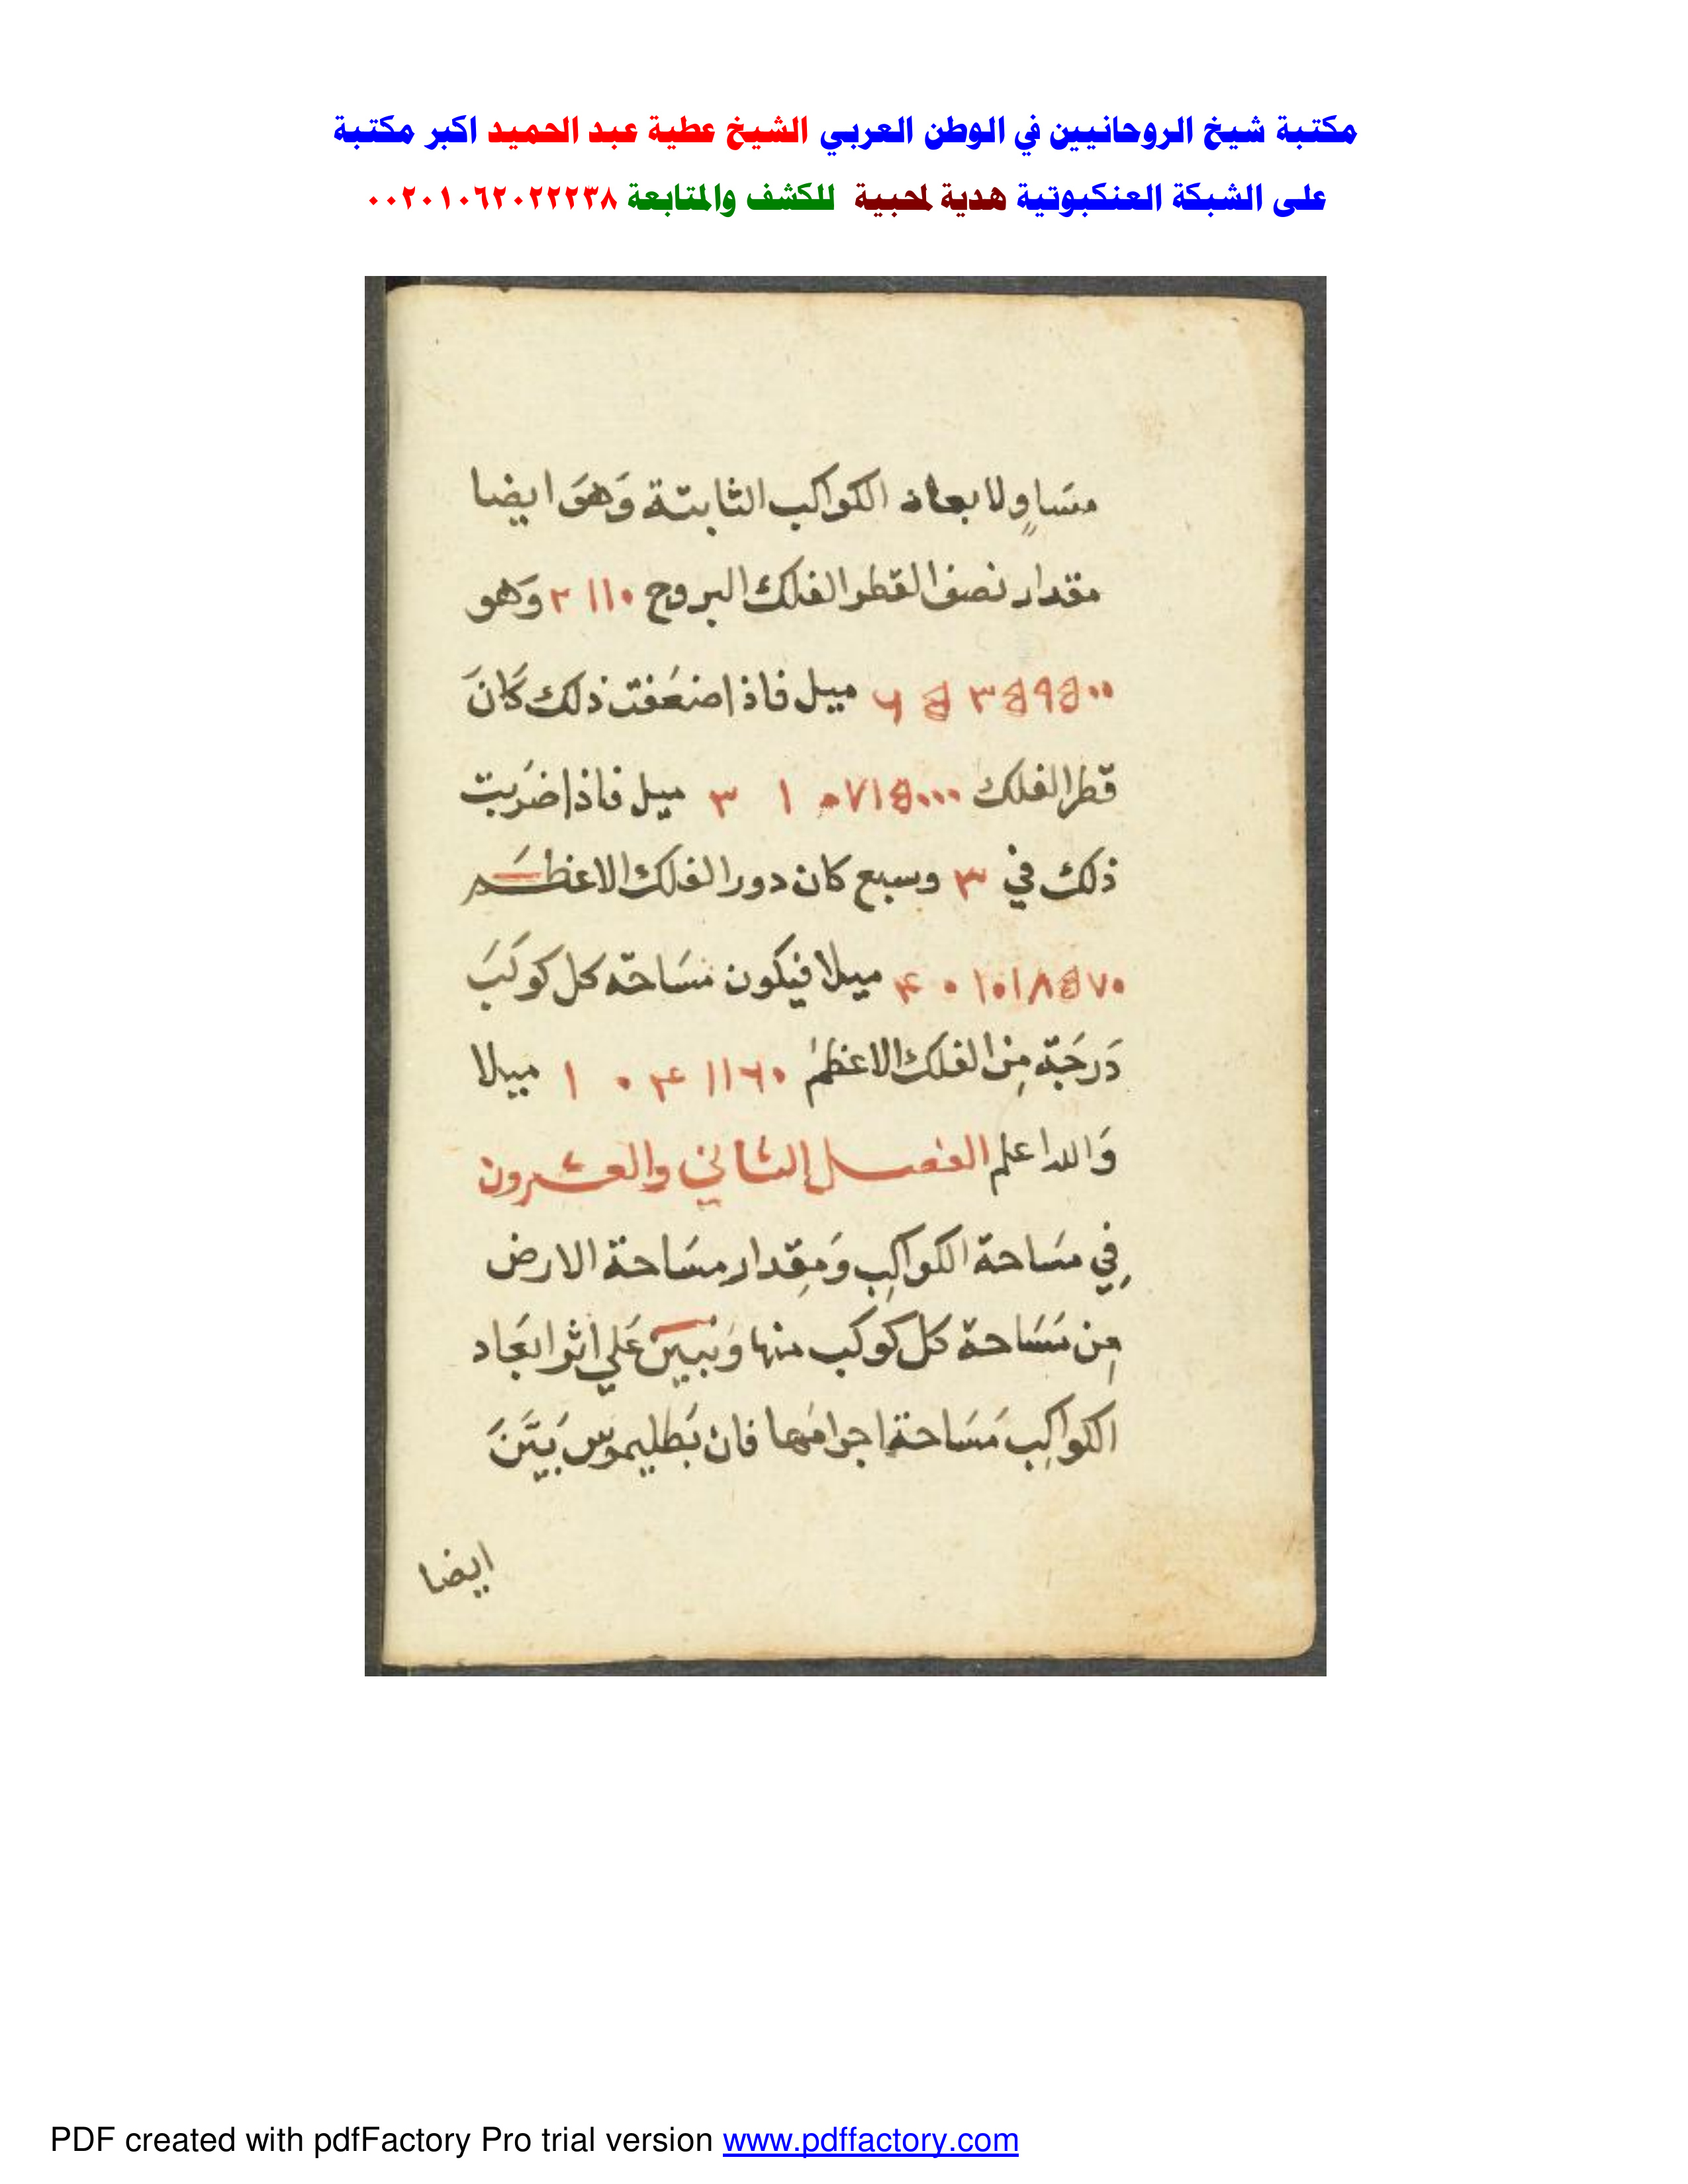 مكتبة شيخ الروحانيين في الوطن العربي الشيخ عطية عبد الحميد اكبر مكتبة
على الشبكة العنكبوتية هدية لمحبية للكشف والمتابعة ٠٠٢٠١٠٦٢٠٢٢٢٣٨
مسَاوٍ لابعاد الكواكب الثابتة وَهوَ ايضا
مقدار نصف القطر الفلك البروج ٢١١٠ وَهو
٦٥٣٥٩٥٠٠ ميل فاذا اضعَفت ذلك كَانَ
قطر الفلك ٣١٠٧١٥٠٠٠ ميل فاذا ضرَبت
ذلك في ٣ وسبع كان دور الفلك الاعظَم
٤٠١٠١٨٥٧٠ ميلا فيكون مسَاحة كل كوكَبَ
دَرجَة مِن الفلك الاعظم ١٠٤١١٦٠ ميلا
وَالله اعلم الفصل الثاني والعشرون
فِي مسَاحة الكواكِب وَمِقدار مسَاحة الارض
مِن مسَاحة كل كوكب منها وَنبينَ عَلي اثر ابعَاد
الكواكِب مَسَاحة اجرامَها فان بَطليموس بَيَّنَ
ايضا
PDF created with pdfFactory Pro trial version www.pdffactory.com